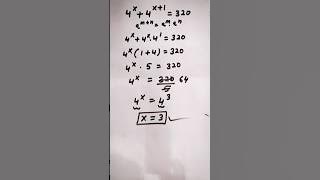 4^x + 4^(x+1) = 320
a^(m+n) = a^m · a^n
4^x + 4^x · 4^1 = 320
4^x (1 + 4) = 320
4^x · 5 = 320
4^x = 320/5 64
4^x = 4^3
x = 3